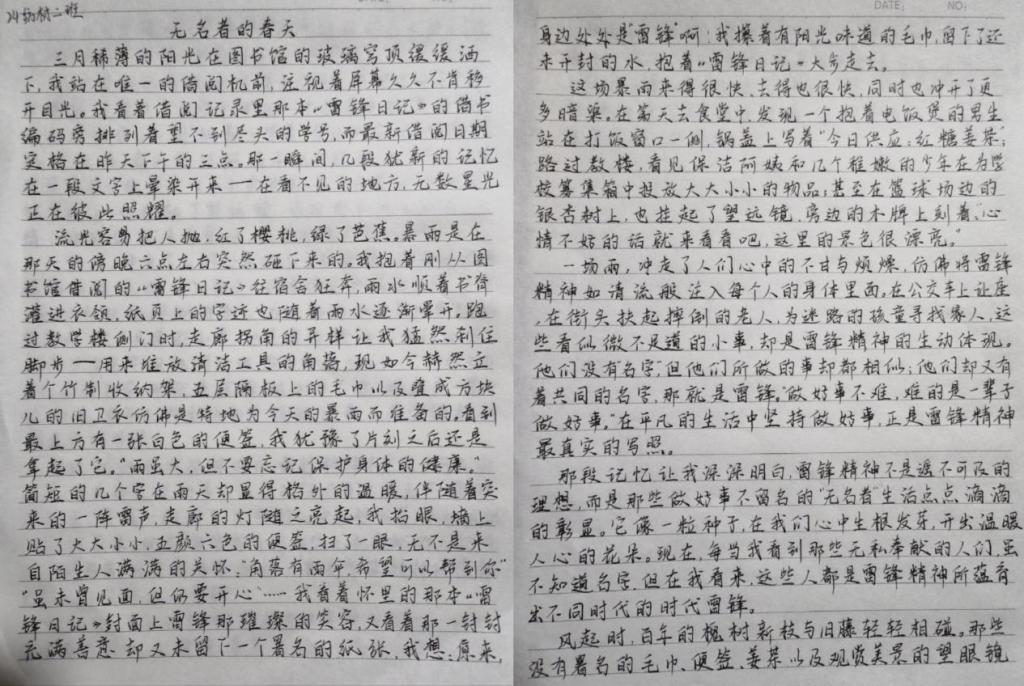 24级机二班
无名者的春天
三月稀薄的阳光在图书馆的玻璃穹顶缓缓洒
下,我站在唯一的借阅机前,注视着屏幕久久不肯移
开目光。我看着借阅记录里那本《雷锋日记》的借书
编码旁排列着望不到尽头的学号,而最新借阅日期
定格在昨天下午的三点。那一瞬间,几段犹新的记忆
在一段文字上晕染开来——在看不见的地方,无数星光
正在彼此照耀。
流光容易把人抛,红了樱桃,绿了芭蕉。暴雨是在
那天的傍晚六点左右突然砸下来的。我抱着刚从图
书馆借阅的《雷锋日记》往宿舍狂奔,雨水顺着书脊
灌进衣领,纸页上的字迹也随着雨水逐渐晕开。跑
过教学楼侧门时,走廊拐角的异样让我猛然刹住
脚步——用来堆放清洁工具的角落,现如今赫然立
着个竹制收纳架,五层隔板上的毛巾以及叠成方块
儿的旧卫衣仿佛是特地为今天的暴雨而准备的。看到
最上方有一张白色的便签,我犹豫了片刻之后还是
拿起了它。"雨虽大,但不要忘记保护身体的健康。"
简短的几个字在雨天却显得格外的温暖,伴随着突
来的一阵雷声,走廊的灯随之亮起,我抬眼,墙上
贴了大大小小,五颜六色的便签,扫了一眼,无不是来
自陌生人满满的关怀:"角落有雨伞,希望可以帮到你"
"虽未曾见面,但仍要开心"……我看着怀里的那本《雷
锋日记》封面上雷锋那璀璨的笑容,又看着那一封封
充满善意却又未留下一个署名的纸张,我想:原来,
DATE: NO:
身边处处是"雷锋"啊!我攥着有阳光味道的毛巾,留下了还
未开封的水,抱着《雷锋日记》大步走去。
这场暴雨来得很快,去得也很快,同时也冲开了更
多暗渠。在第天去食堂中,发现一个抱着电饭煲的男生
站在打饭窗口一侧,锅盖上写着"今日供应:红糖姜茶";
路过教楼,看见保洁阿姨和几个稚嫩的少年在为学
校募集箱中投放大大小小的物品;甚至在篮球场边的
银杏树上,也挂起了望远镜,旁边的木牌上刻着,"心
情不好的话就来看看吧,这里的景色很漂亮。"
一场雨,冲走了人们心中的不甘与烦燥,仿佛将雷锋
精神如清流般注入每个人的身体里面,在公交车上让座
,在街头扶起摔倒的老人,为迷路的孩童寻找家人,这
些看似微不足道的小事,却是雷锋精神的生动体现。
他们没有名字,但他们所做的事却都相似;他们却又有
着共同的名字,那就是雷锋。"做好事不难,难的是一辈子
做好事。"在平凡的生活中坚持做好事,正是雷锋精神
最真实的写照。
那段记忆让我深深明白,雷锋精神不是遥不可及的
理想,而是那些做好事不留名的"无名者"生活点点滴滴
的彰显。它像一粒种子,在我们心中生根发芽,开出温暖
人心的花朵。现在,每当我看到那些无私奉献的人们,虽
不知道名字,但在我看来,这些人都是雷锋精神所蕴育
出不同时代的时代雷锋。
风起时,百年的槐树新枝与旧藤轻轻相碰。那些
没有署名的毛巾、便签、姜茶以及观赏美景的望眼镜